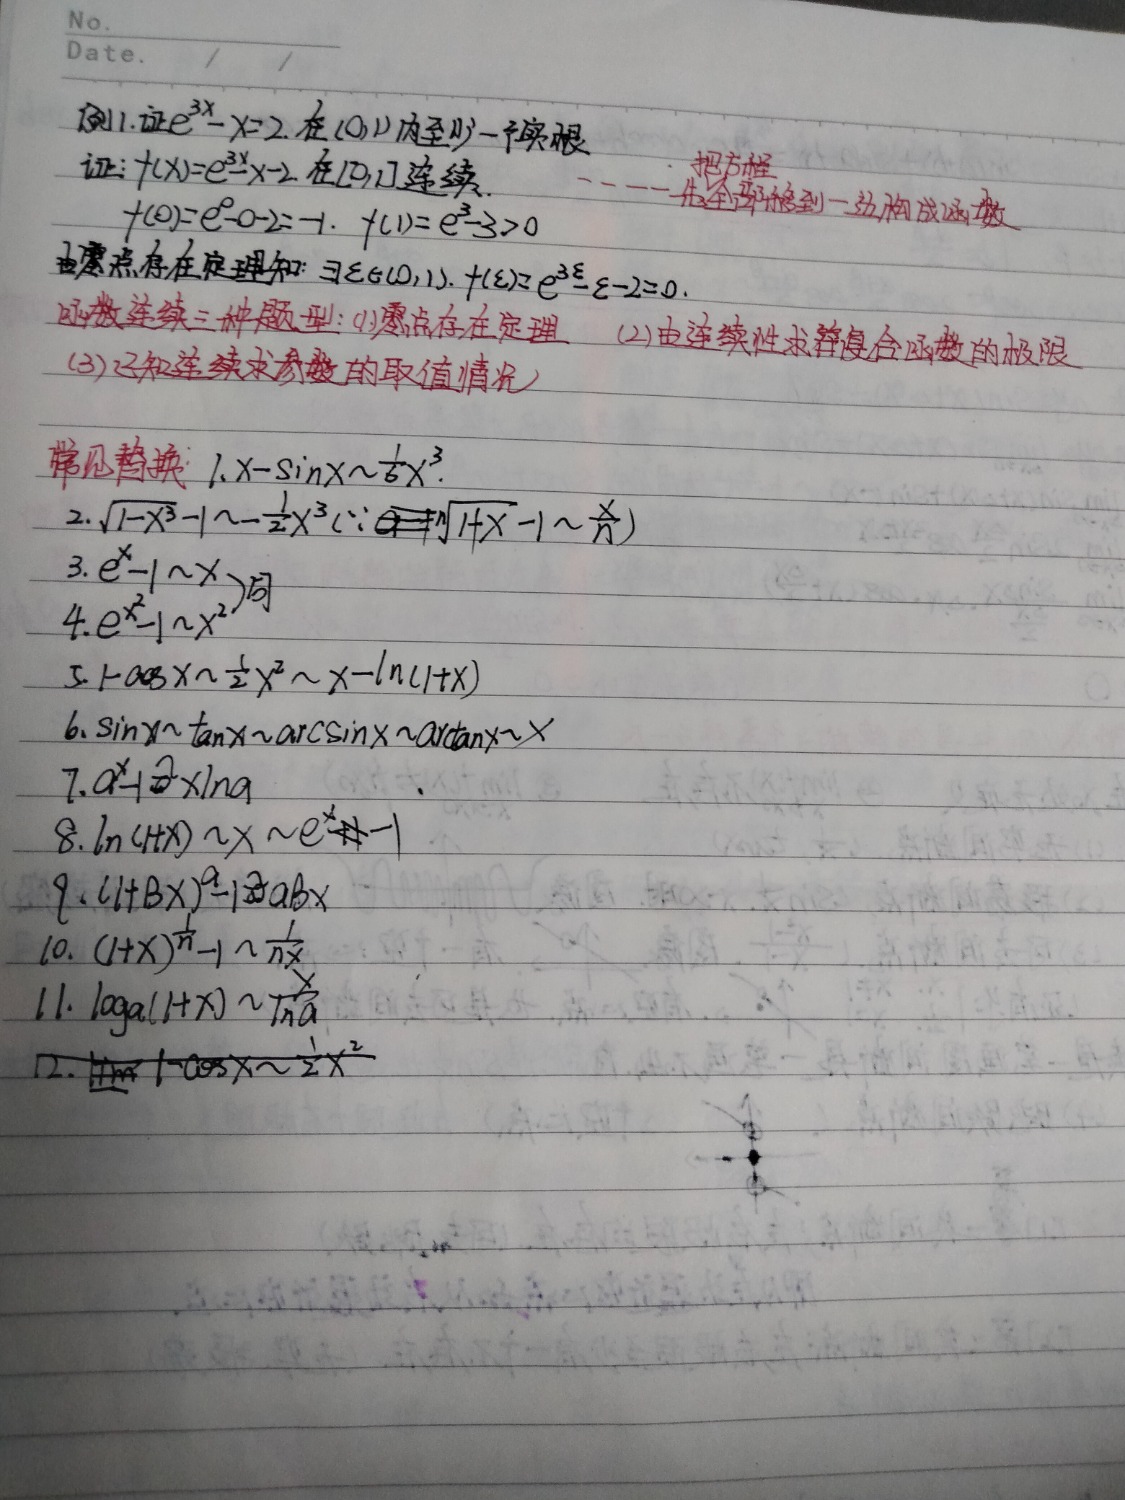 No.
Date. / /
例1.证e^{3x}-x=2.在(0,1)内至少一个实根
证:f(x)=e^{3x}-x-2.在[0,1]连续.
把方程
----先全部移到一边构成函数
f(0)=e^0-0-2=-1. f(1)=e^3-3>0
由零点存在定理知:∃ε∈(0,1).f(ε)=e^{3ε}-ε-2=0.
函数连续三种题型:(1)零点存在定理 (2)由连续性求算复合函数的极限
(3)已知连续求参数的取值情况
常见替换: 1.x-sinx~\frac{1}{6}x^3.
2.\sqrt{1-x^3}-1~-\frac{1}{2}x^3(∵\sqrt[n]{1+x}-1~\frac{x}{n})
3.e^x-1~x
)同
4.e^{x^2}-1~x^2
5.1-cosx~\frac{1}{2}x^2~x-ln(1+x)
6.sinx~tanx~arcsinx~arctanx~x
7.a^x-1~xlna
8.ln(1+x)~x~e^x-1
9.(1+Bx)^a-1~aBx
10.(1+x)^{\frac{1}{n}}-1~\frac{1}{n}x
11.loga(1+x)~\frac{x}{lna}
12. 1-cosx~\frac{1}{2}x^2